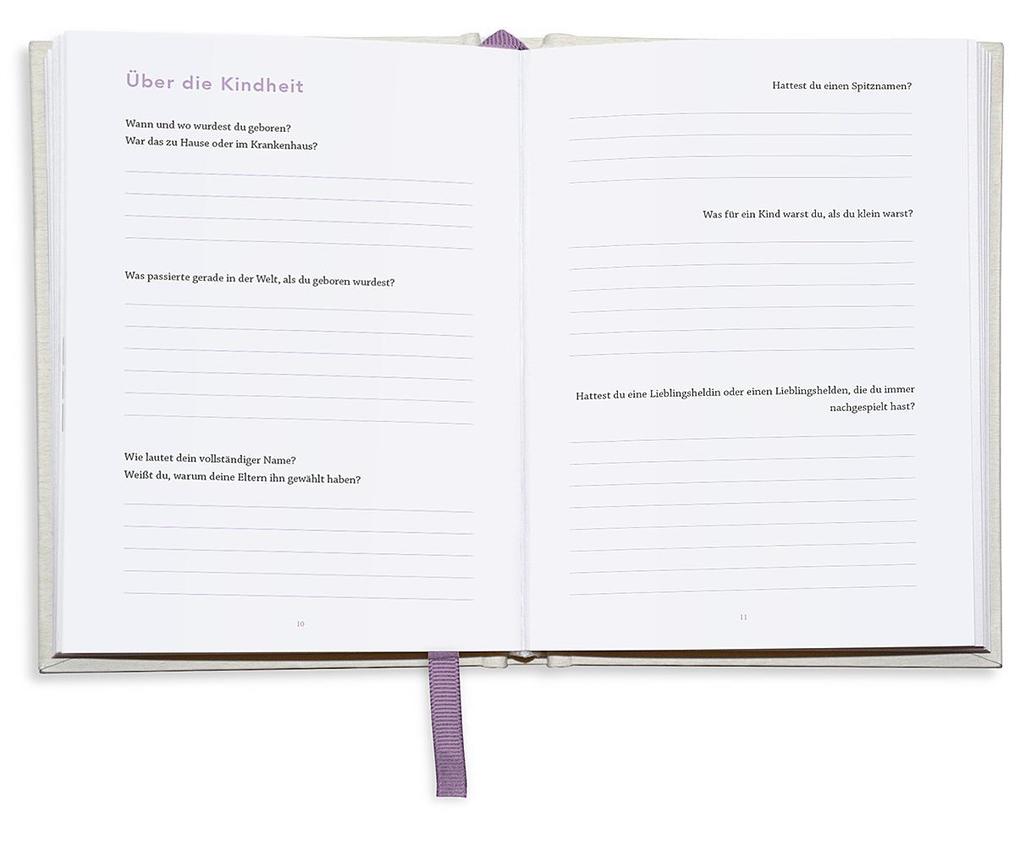 Über die Kindheit
Wann und wo wurdest du geboren?
War das zu Hause oder im Krankenhaus?
Was passierte gerade in der Welt, als du geboren wurdest?
Wie lautet dein vollständiger Name?
Weißt du, warum deine Eltern ihn gewählt haben?
10
Hattest du einen Spitznamen?
Was für ein Kind warst du, als du klein warst?
Hattest du eine Lieblingsheldin oder einen Lieblingshelden, die du immer
nachgespielt hast?
11